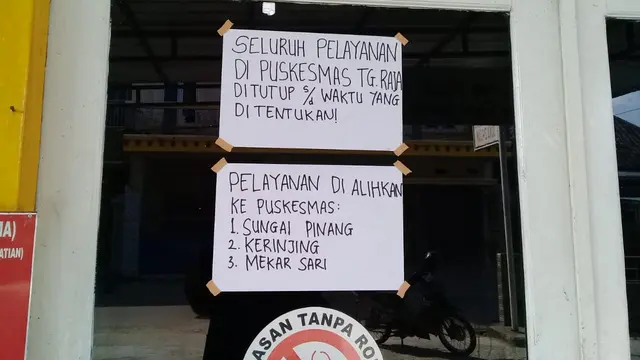 SELURUH PELAYANAN
DI PUSKESMAS TG. RAJA
DITUTUP S/d WAKTU YANG
DITENTUKAN!
PELAYANAN DI ALIHKAN
KE PUSKESMAS:
1. SUNGAI PINANG
2. KERINJING
3. MEKAR SARI
ASAN TANPA RO
A)
ATIAN)